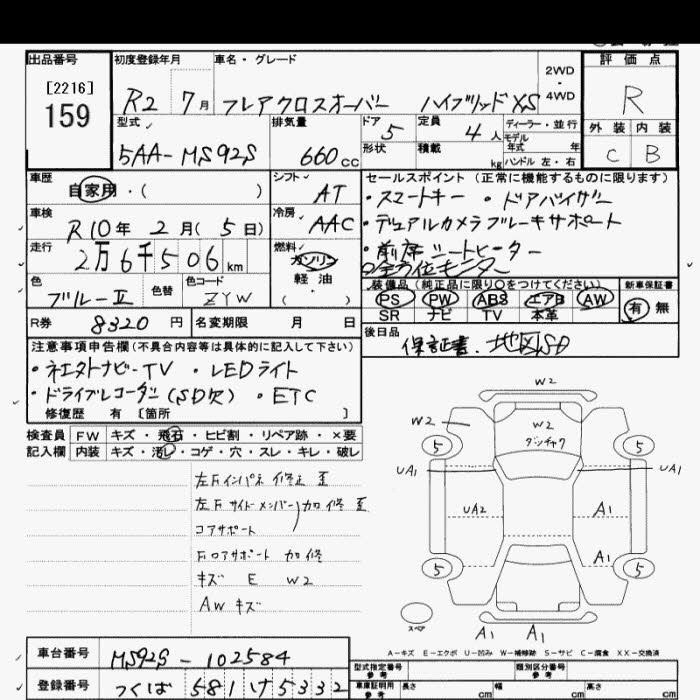 出品番号 初度登録年月 車名・グレード 評価点
[2216]
159
R2 7月 フレアクロスオーバー ハイブリッドXS 2WD・4WD R
型式 排気量 ドア 定員 ディーラー・並行 外装 内装
5AA-MS92S 660cc 5 4人 モデル年式 年
形状 積載 kg ハンドル 左・右 C B
車歴 シフト セールスポイント (正常に機能するものに限ります)
自家用・( ) AT ・スマートキー ・ドアバイザー
車検 冷房 ・デュアルカメラブレーキサポート
R10年 2月(5日) AAC ・前席シートヒーター
走行 燃料 ○全方位モニター
2万6千506km ガソリン
軽油
色 色替 色コード ( ・ ) 装備品(純正品に限り○をつけてください) 新車保証書
ブルーⅡ ZYW PS PW ABS エアB AW 有 無
SR ナビ TV 本革
R券 8320円 名変期限 月 日 後日品
保証書、地図SD
注意事項申告欄(不具合内容等は具体的に記入して下さい)
・ネエストナビ-TV ・LEDライト
・ドライブレコーダー(SD欠) ・ETC
修復歴 有 〔箇所 〕
検査員 FW キズ・飛石・ヒビ割・リペア跡・×要
記入欄 内装 キズ・汚し・コゲ・穴・スレ・キレ・破レ
左Fインパネ 修正 歪
左Fサイドメンバー 加修 歪
コアサポート
Fロアサポート 加修
キズ E W2
AWキズ
W2
W2 W2
ダッチャク
5 5
UA1 UA1
UA2 A1
A1
5 5
スペア
A1 A1
A-キズ E-エクボ U-凹み W-補修跡 S-サビ C-腐食 XX-交換済
車台番号 MS92S-102584 型式指定番号 参考 類別区分番号 参考
登録番号 つくば 581 け 5332 車庫証明用 参考 長さ cm 幅 cm 高さ cm